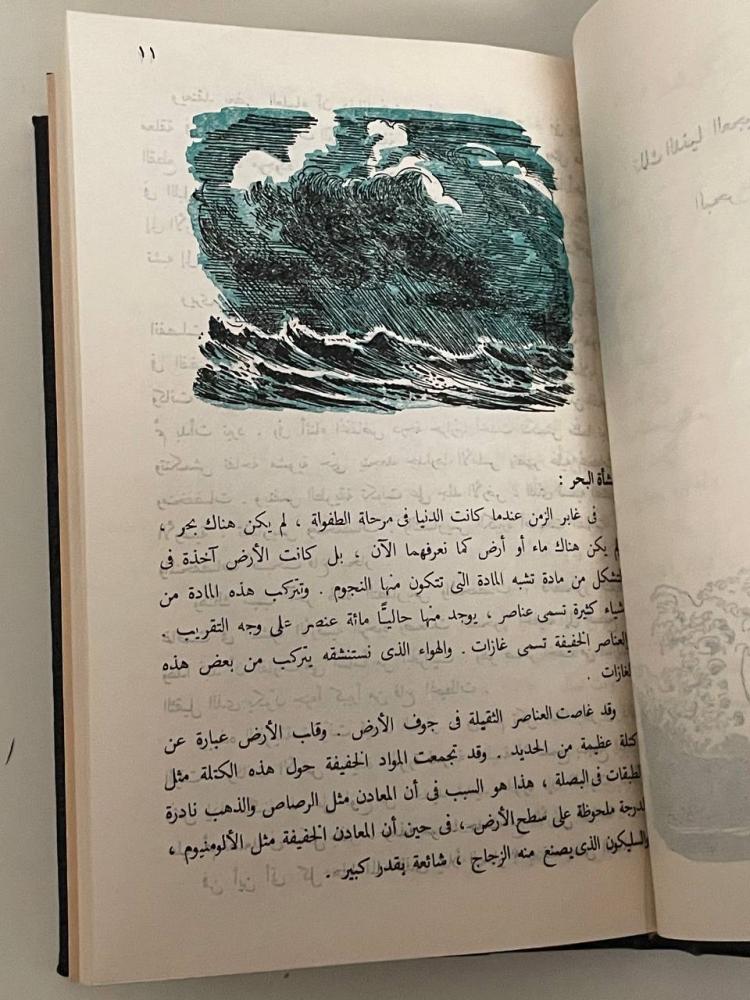 ١١
نشأة البحر :
فى غابر الزمن عندما كانت الدنيا فى مرحلة الطفولة ، لم يكن هناك بحر ،
لم يكن هناك ماء أو أرض كما نعرفهما الآن ، بل كانت الأرض آخذة فى
التشكل من مادة تشبه المادة التى تتكون منها النجوم . وتتركب هذه المادة من
أشياء كثيرة تسمى عناصر ، يوجد منها حاليًّا مائة عنصر على وجه التقريب .
والعناصر الخفيفة تسمى غازات . والهواء الذى نستنشقه يتركب من بعض هذه
الغازات .
وقد غاصت العناصر الثقيلة فى جوف الأرض . وقلب الأرض عبارة عن
كتلة عظيمة من الحديد . وقد تجمعت المواد الخفيفة حول هذه الكتلة مثل
الطبقات فى البصلة ، هذا هو السبب فى أن المعادن مثل الرصاص والذهب نادرة
لدرجة ملحوظة على سطح الأرض ، فى حين أن المعادن الخفيفة مثل الألومنيوم ،
والسليكون الذى يصنع منه الزجاج ، شائعة بقدر كبير .